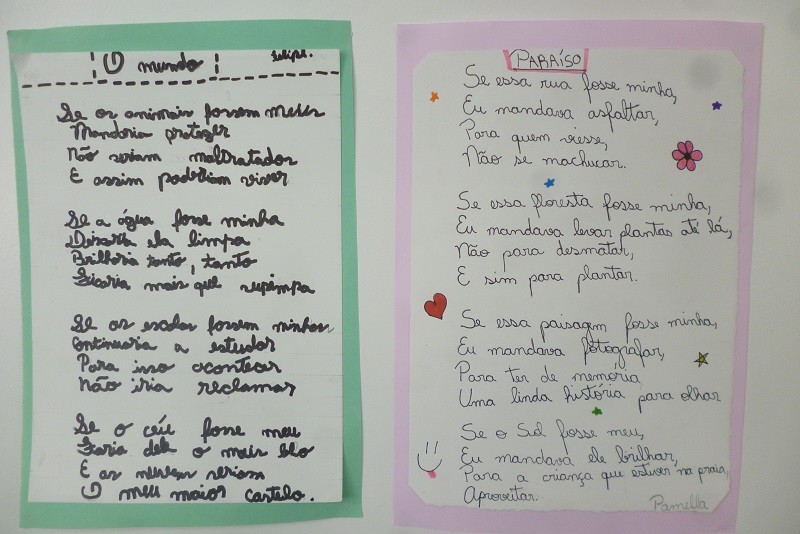 O mundo
Felipe.
Se os animais fossem meus
Mandaria proteger
Não seriam maltratados
E assim poderiam viver
Se a água fosse minha
Deixaria ela limpa
Brilharia tanto, tanto
Ficaria mais que supimpa
Se as escolas fossem minhas
Continuaria a estudar
Para isso acontecer
Não iria reclamar
Se o céu fosse meu
Faria dele o mais belo
E as nuvens seriam
O meu maior castelo.
PARAÍSO
Se essa rua fosse minha,
Eu mandava asfaltar,
Para quem viesse,
Não se machucar.
Se essa floresta fosse minha,
Eu mandava levar plantas até lá,
Não para desmatar,
E sim para plantar.
Se essa paisagem fosse minha,
Eu mandava fotografar,
Para ter de memória
Uma linda história para olhar
Se o Sol fosse meu,
Eu mandava ele brilhar,
Para a criança que estiver na praia,
Aproveitar.
Pamella